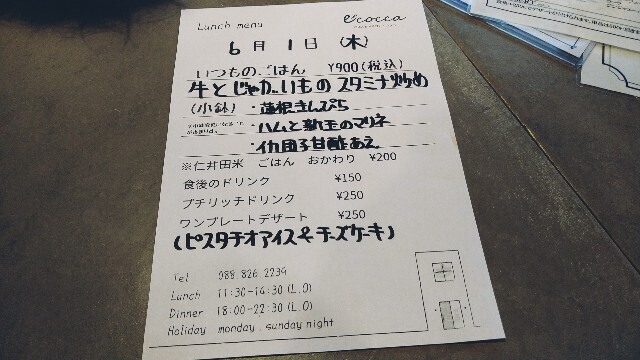 Lunch menu
ecocca
6月1日(木)
いつものごはん ¥900(税込)
牛とじゃがいものスタミナ炒め
(小鉢)・蓮根きんぴら
・ハムと新玉のマリネ
・イカ団子甘酢あえ
※仁井田米 ごはん おかわり ¥200
食後のドリンク ¥150
プチリッチドリンク ¥250
ワンプレートデザート ¥250
(ピスタチオアイス&チーズケーキ)
Tel 088.826.2239
Lunch 11:30-14:30 (L.O)
Dinner 18:00-22:30 (L.O)
Holiday monday.sunday night